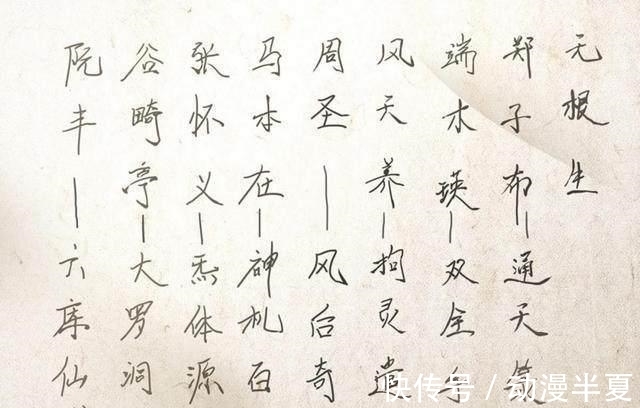 无根生
郑子布—通天
端木瑛—双全手
风天养—拘灵遣
周圣—风后奇
马本在—神机百
张怀义—炁体源
谷畸亭—大罗洞
阮丰—六库仙
快传号 / 动漫半夏